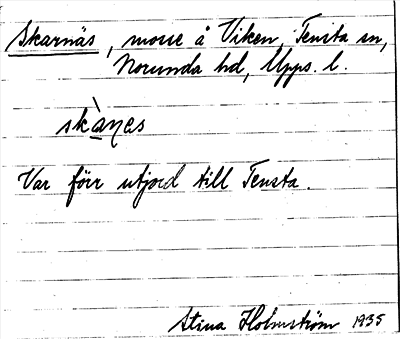 Skarnäs, mosse å Viken, Tensta sn,
Norunda hd, Upps. l.
skànes
Var förr utjord till Tensta.
Stina Holmström 1935